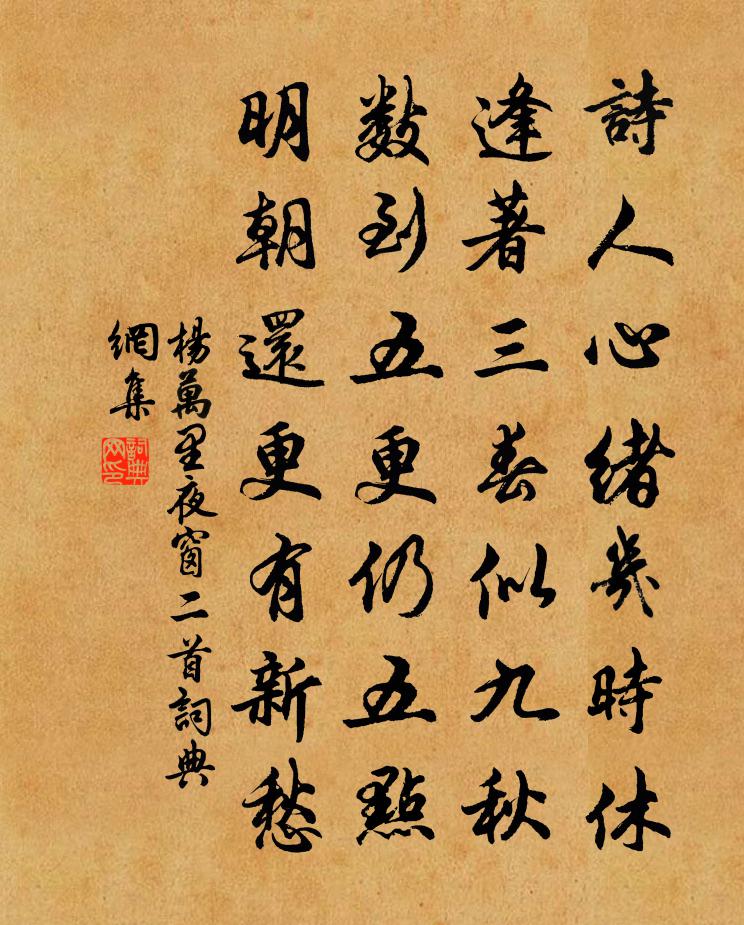 詩人心緒幾時休
逢著三春似九秋
數到五更仍五點
明朝還更有新愁
楊萬里夜窗二首詞典
網集
詞典
网印